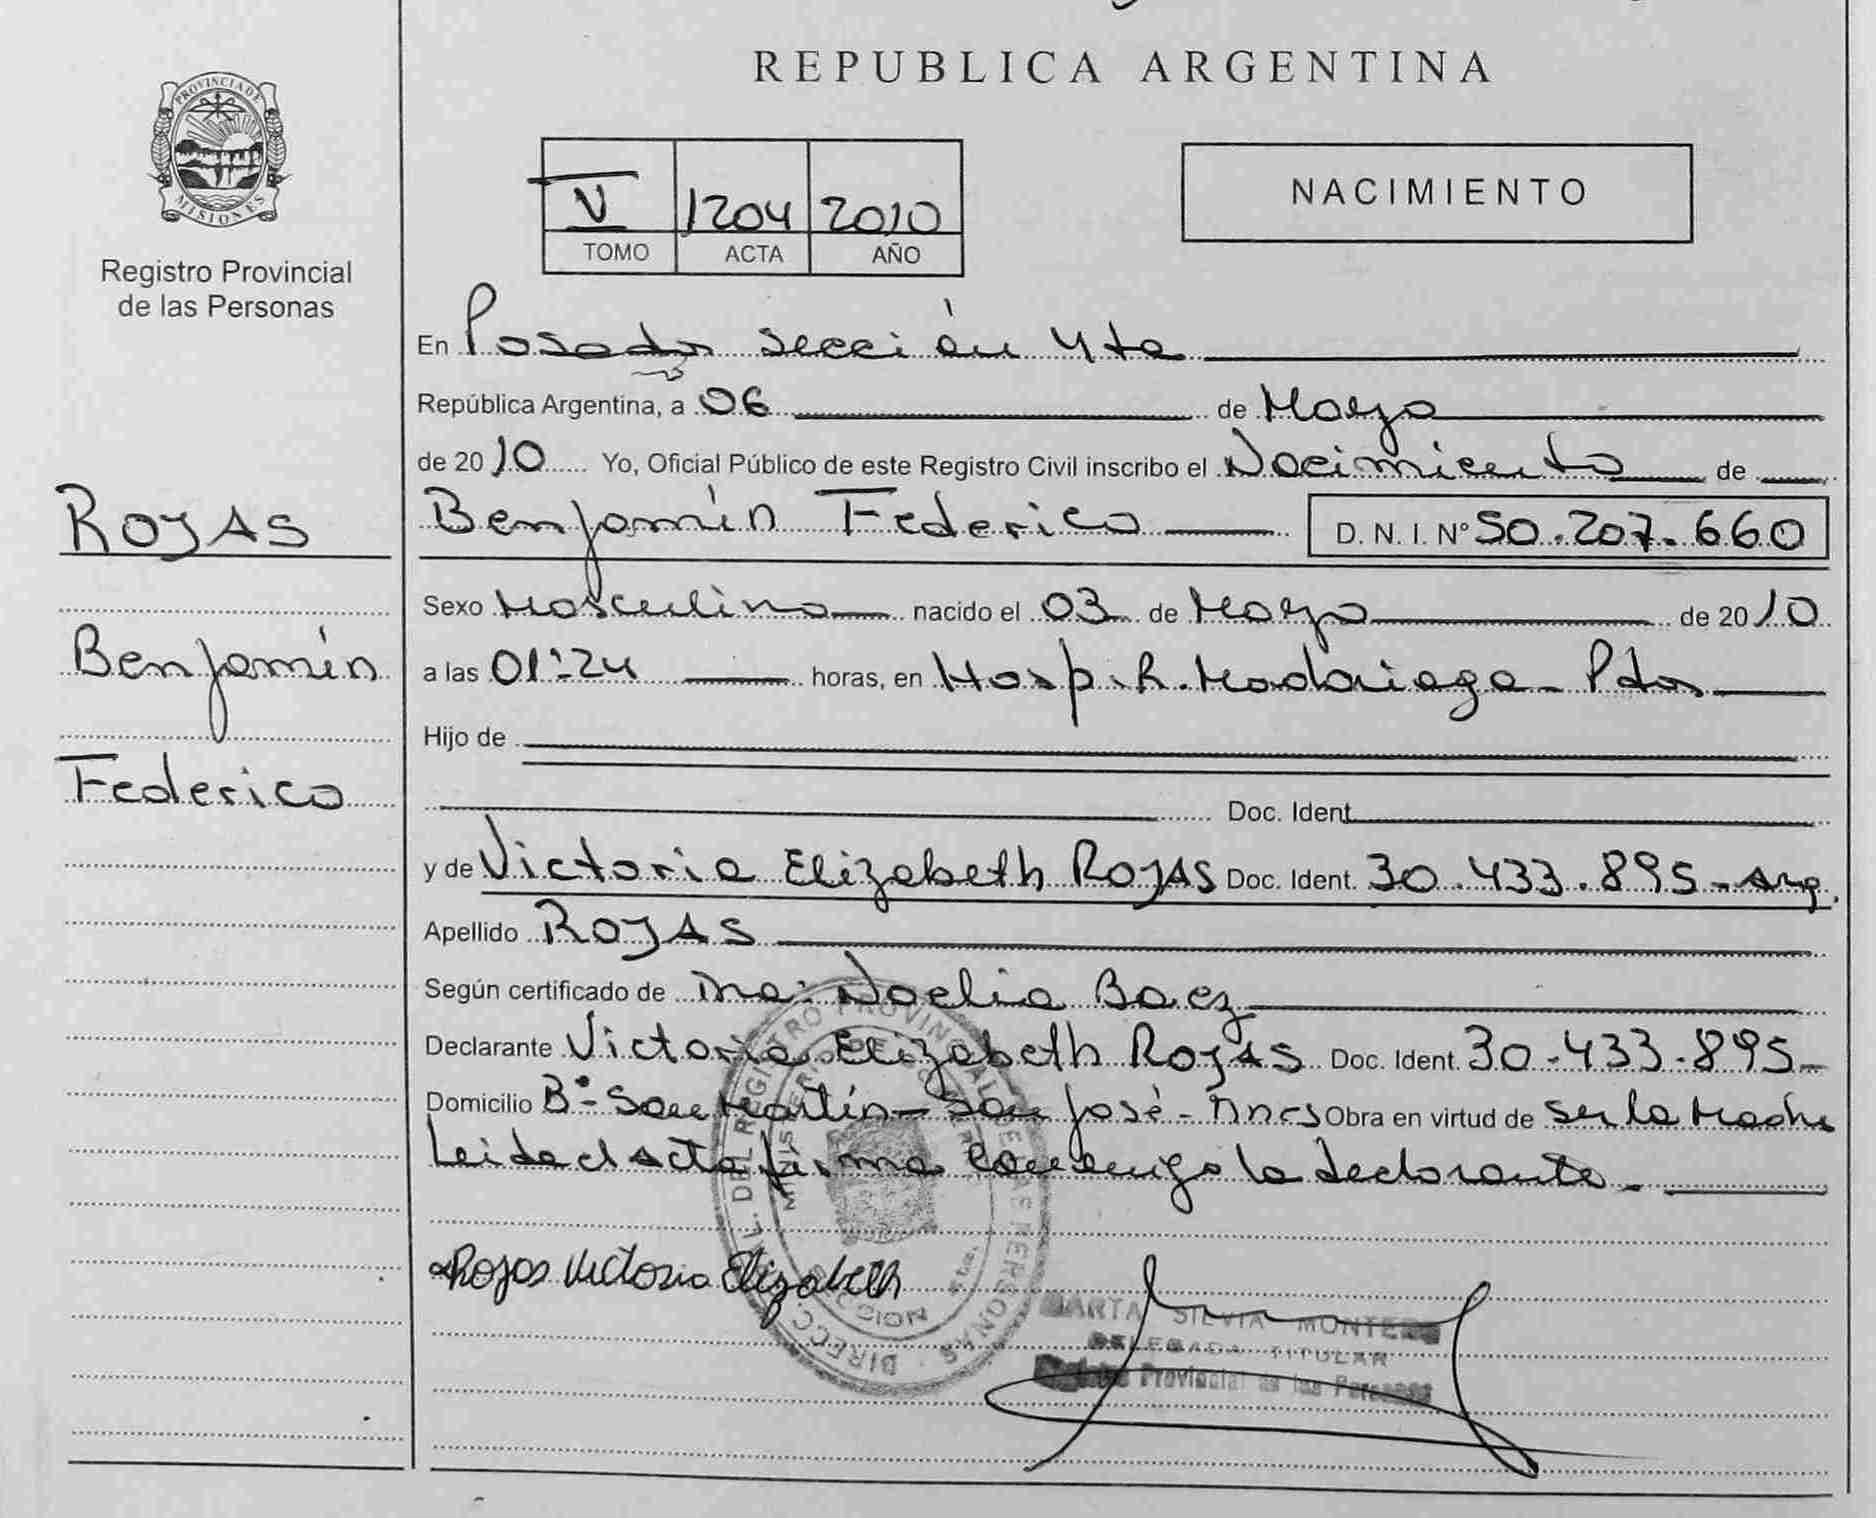 REPUBLICA ARGENTINA
PROVINCIA DE
MISIONES
Registro Provincial
de las Personas
V 1204 2010
TOMO ACTA AÑO
NACIMIENTO
En Posadas sección 4ta
República Argentina, a 06 de Mayo
de 2010 Yo, Oficial Público de este Registro Civil inscribo el Nacimiento de
Benjamín Federico D. N. I. Nº 50.207.660
ROJAS
Benjamín
Federico
Sexo Masculino nacido el 03 de Mayo de 2010
a las 01:24 horas, en Hosp. R. Madariaga - Pdas
Hijo de
Doc. Ident.
y de Victoria Elizabeth ROJAS Doc. Ident. 30.433.895 - Arg.
Apellido ROJAS
Según certificado de Dra: Noelia Baez
Declarante Victoria Elizabeth ROJAS Doc. Ident. 30-433-895-
Domicilio Bº- San Martín - San José - Mnes Obra en virtud de ser la Madre
Leida el Acta firma conmigo la declarante.-
Rojas Victoria Elizabeth
MARTA SILVIA MONTERO
DELEGADA TITULAR
Registro Provincial de las Personas
DIRECC. GRAL. DEL REGISTRO PROVINCIAL DE LAS PERSONAS